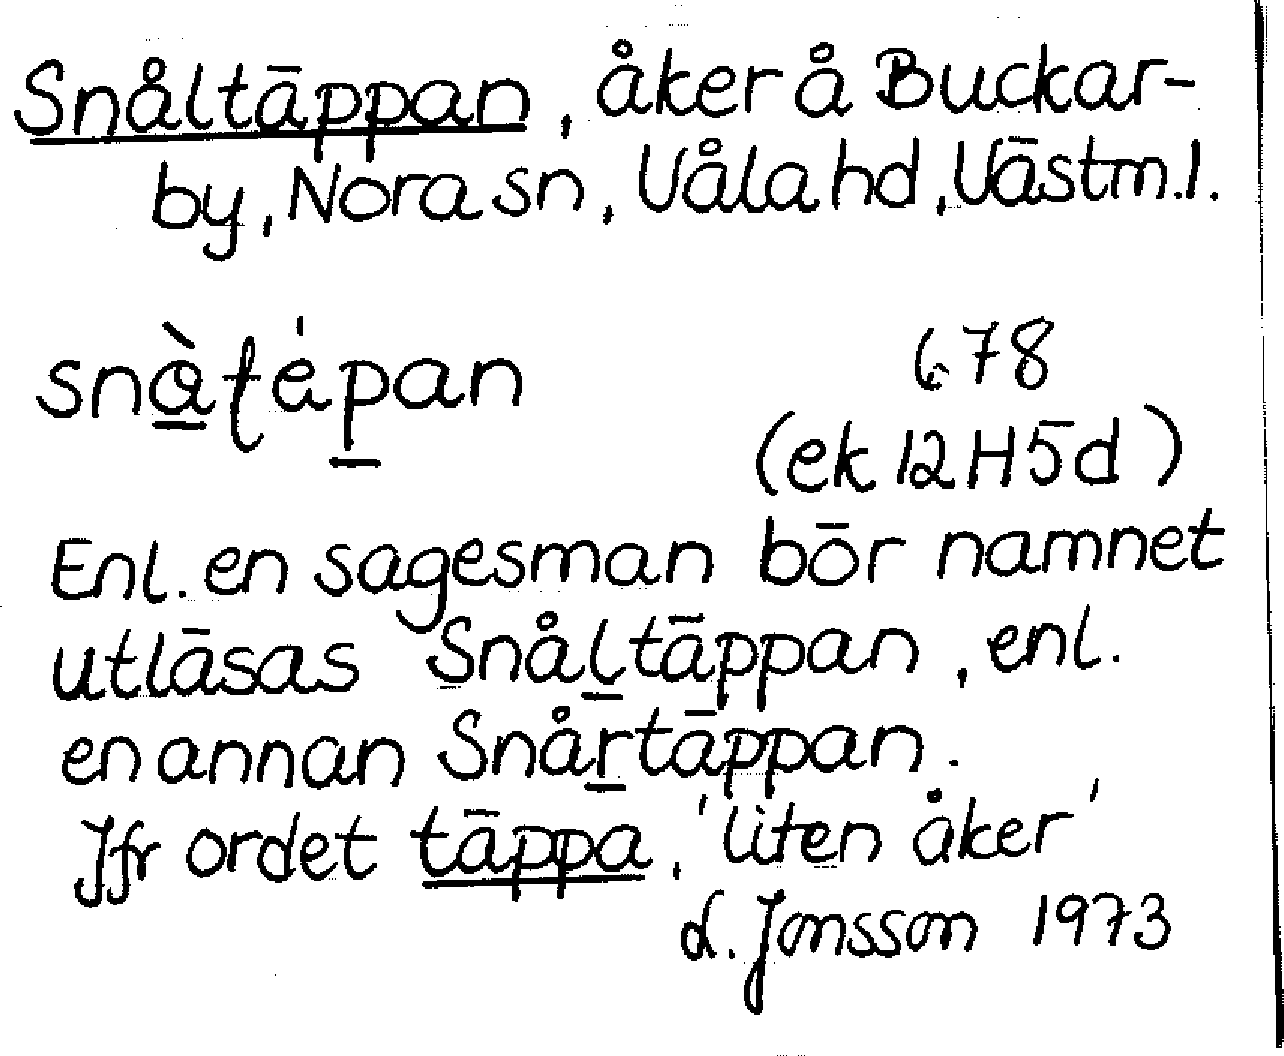 Snåltäppan, åker å Buckar-
by, Nora sn, Våla hd, Västm.l.
snàt́épan
678
(ek 12H5d)
Enl. en sagesman bör namnet
utläsas Snåltäppan, enl.
en annan Snårtäppan.
Jfr ordet täppa, 'liten åker'
Jonsson 1973